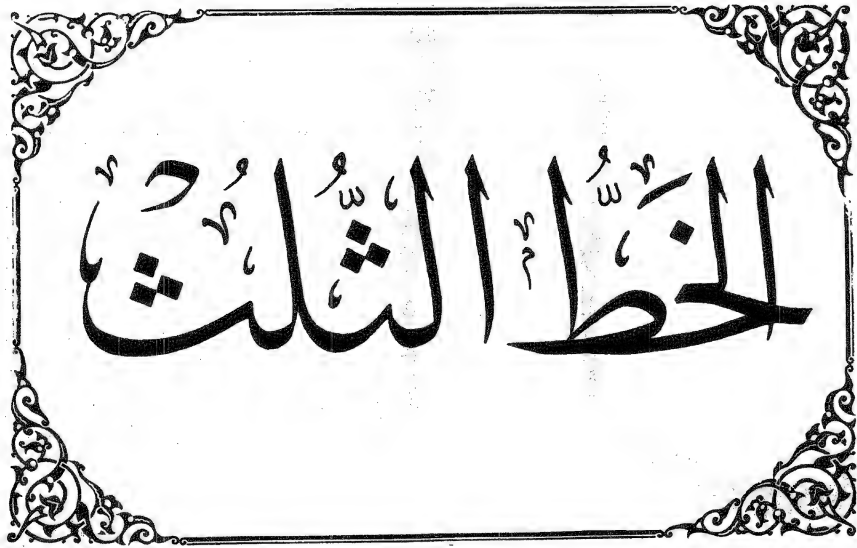 الخَطُّ الثُّلُثُ